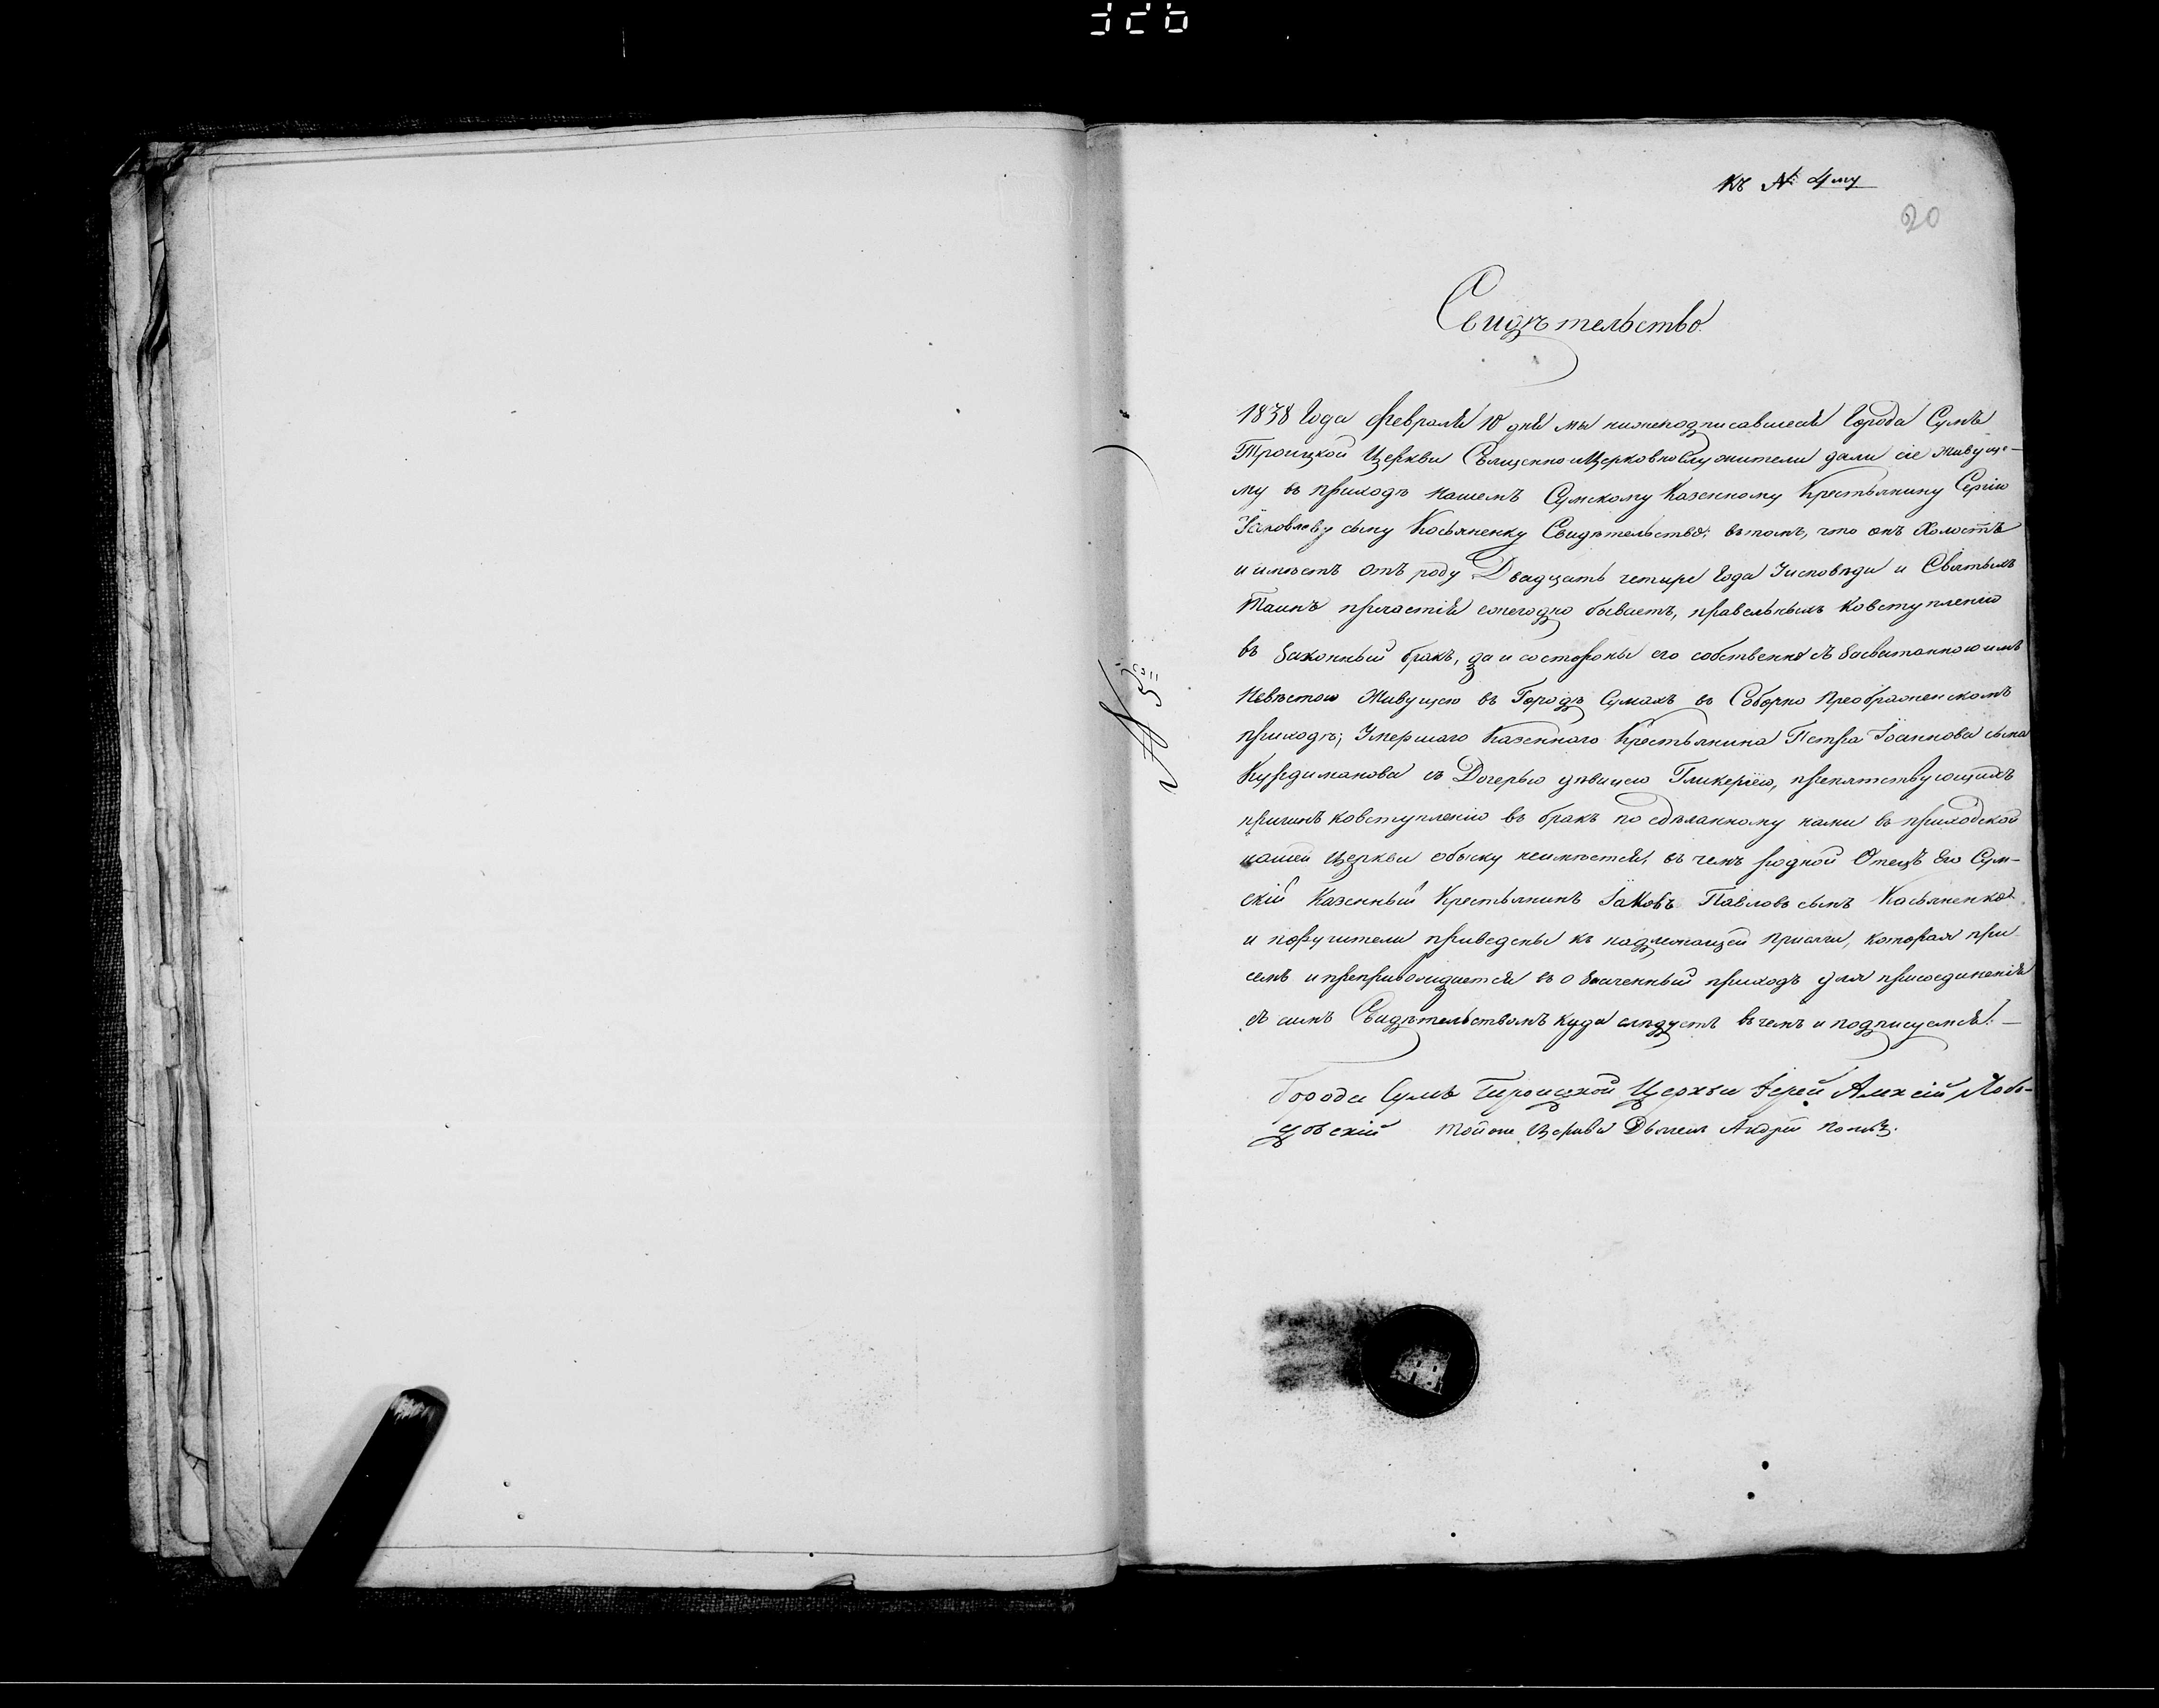 къ № 4му
20
Свидѣтельство
1838 Года февраля 10 дня мы нижеподписавшіеся Города Сумъ
Троицкой Церкви Священно и Церковно Служители дали сіе живуще-
му въ приходѣ нашемъ Сумскому Казенному Крестьянину Сергію
Іаковлеву сыну Косьяненку Свидѣтельство, въ томъ, что онъ Холостъ
и имѣетъ отъ роду Двадцать четыре Года Уисповѣди и Святыхъ
Таинъ причастія ежегодно бываетъ, правельнымъ ковступленію
въ Законный бракъ, да и состороны его собственно съ Засватанною имъ
Невѣстою Живущею въ Городѣ Сумахъ въ Соборно Преображенскомъ
приходѣ; Умершаго Казенного Крестьянина Петра Іоаннова сына
Курдиманова съ Дочерью дѣвицею Гликеріею, препятствующихъ
причинъ ковступленію въ бракъ по сдѣланному нами въ приходской
нашей Церкви обыску неимѣется, въ чемъ родной Отецъ Его Сум-
скій Казенный Крестьянинъ Іаковъ Павловъ сынъ Косьяненко
и поручители приведены къ надлежащей присяги, которая при
семъ и препривождается въ означенный приходъ для присоединенія
съ симъ Свидѣтельствомъ куда слѣдуетъ въ чемъ и подписуемся. —
Города Сумъ Троицкой Церкви Іерей Алексій Лобо-
довскій Тойже Церкви Дьячекъ Андрей
№ 5